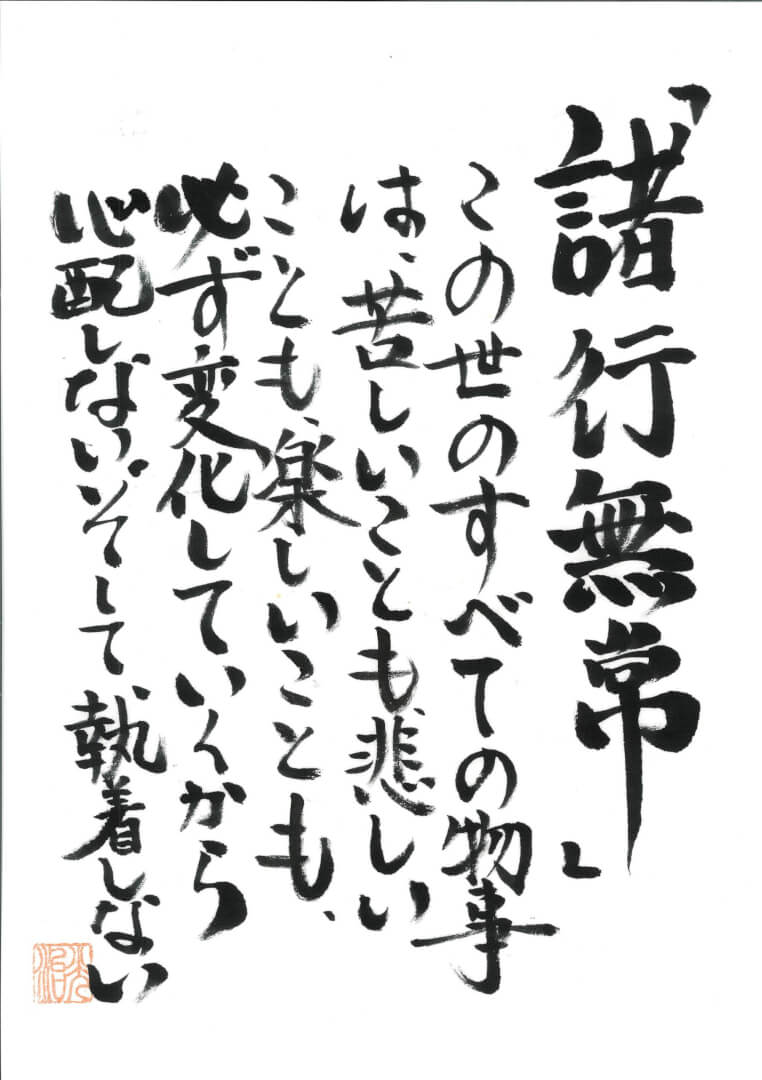 「諸行無常」
この世のすべての物事
は、苦しいことも、悲しい
ことも、楽しいことも、
必ず変化していくから
心配しない。そして、執着しない